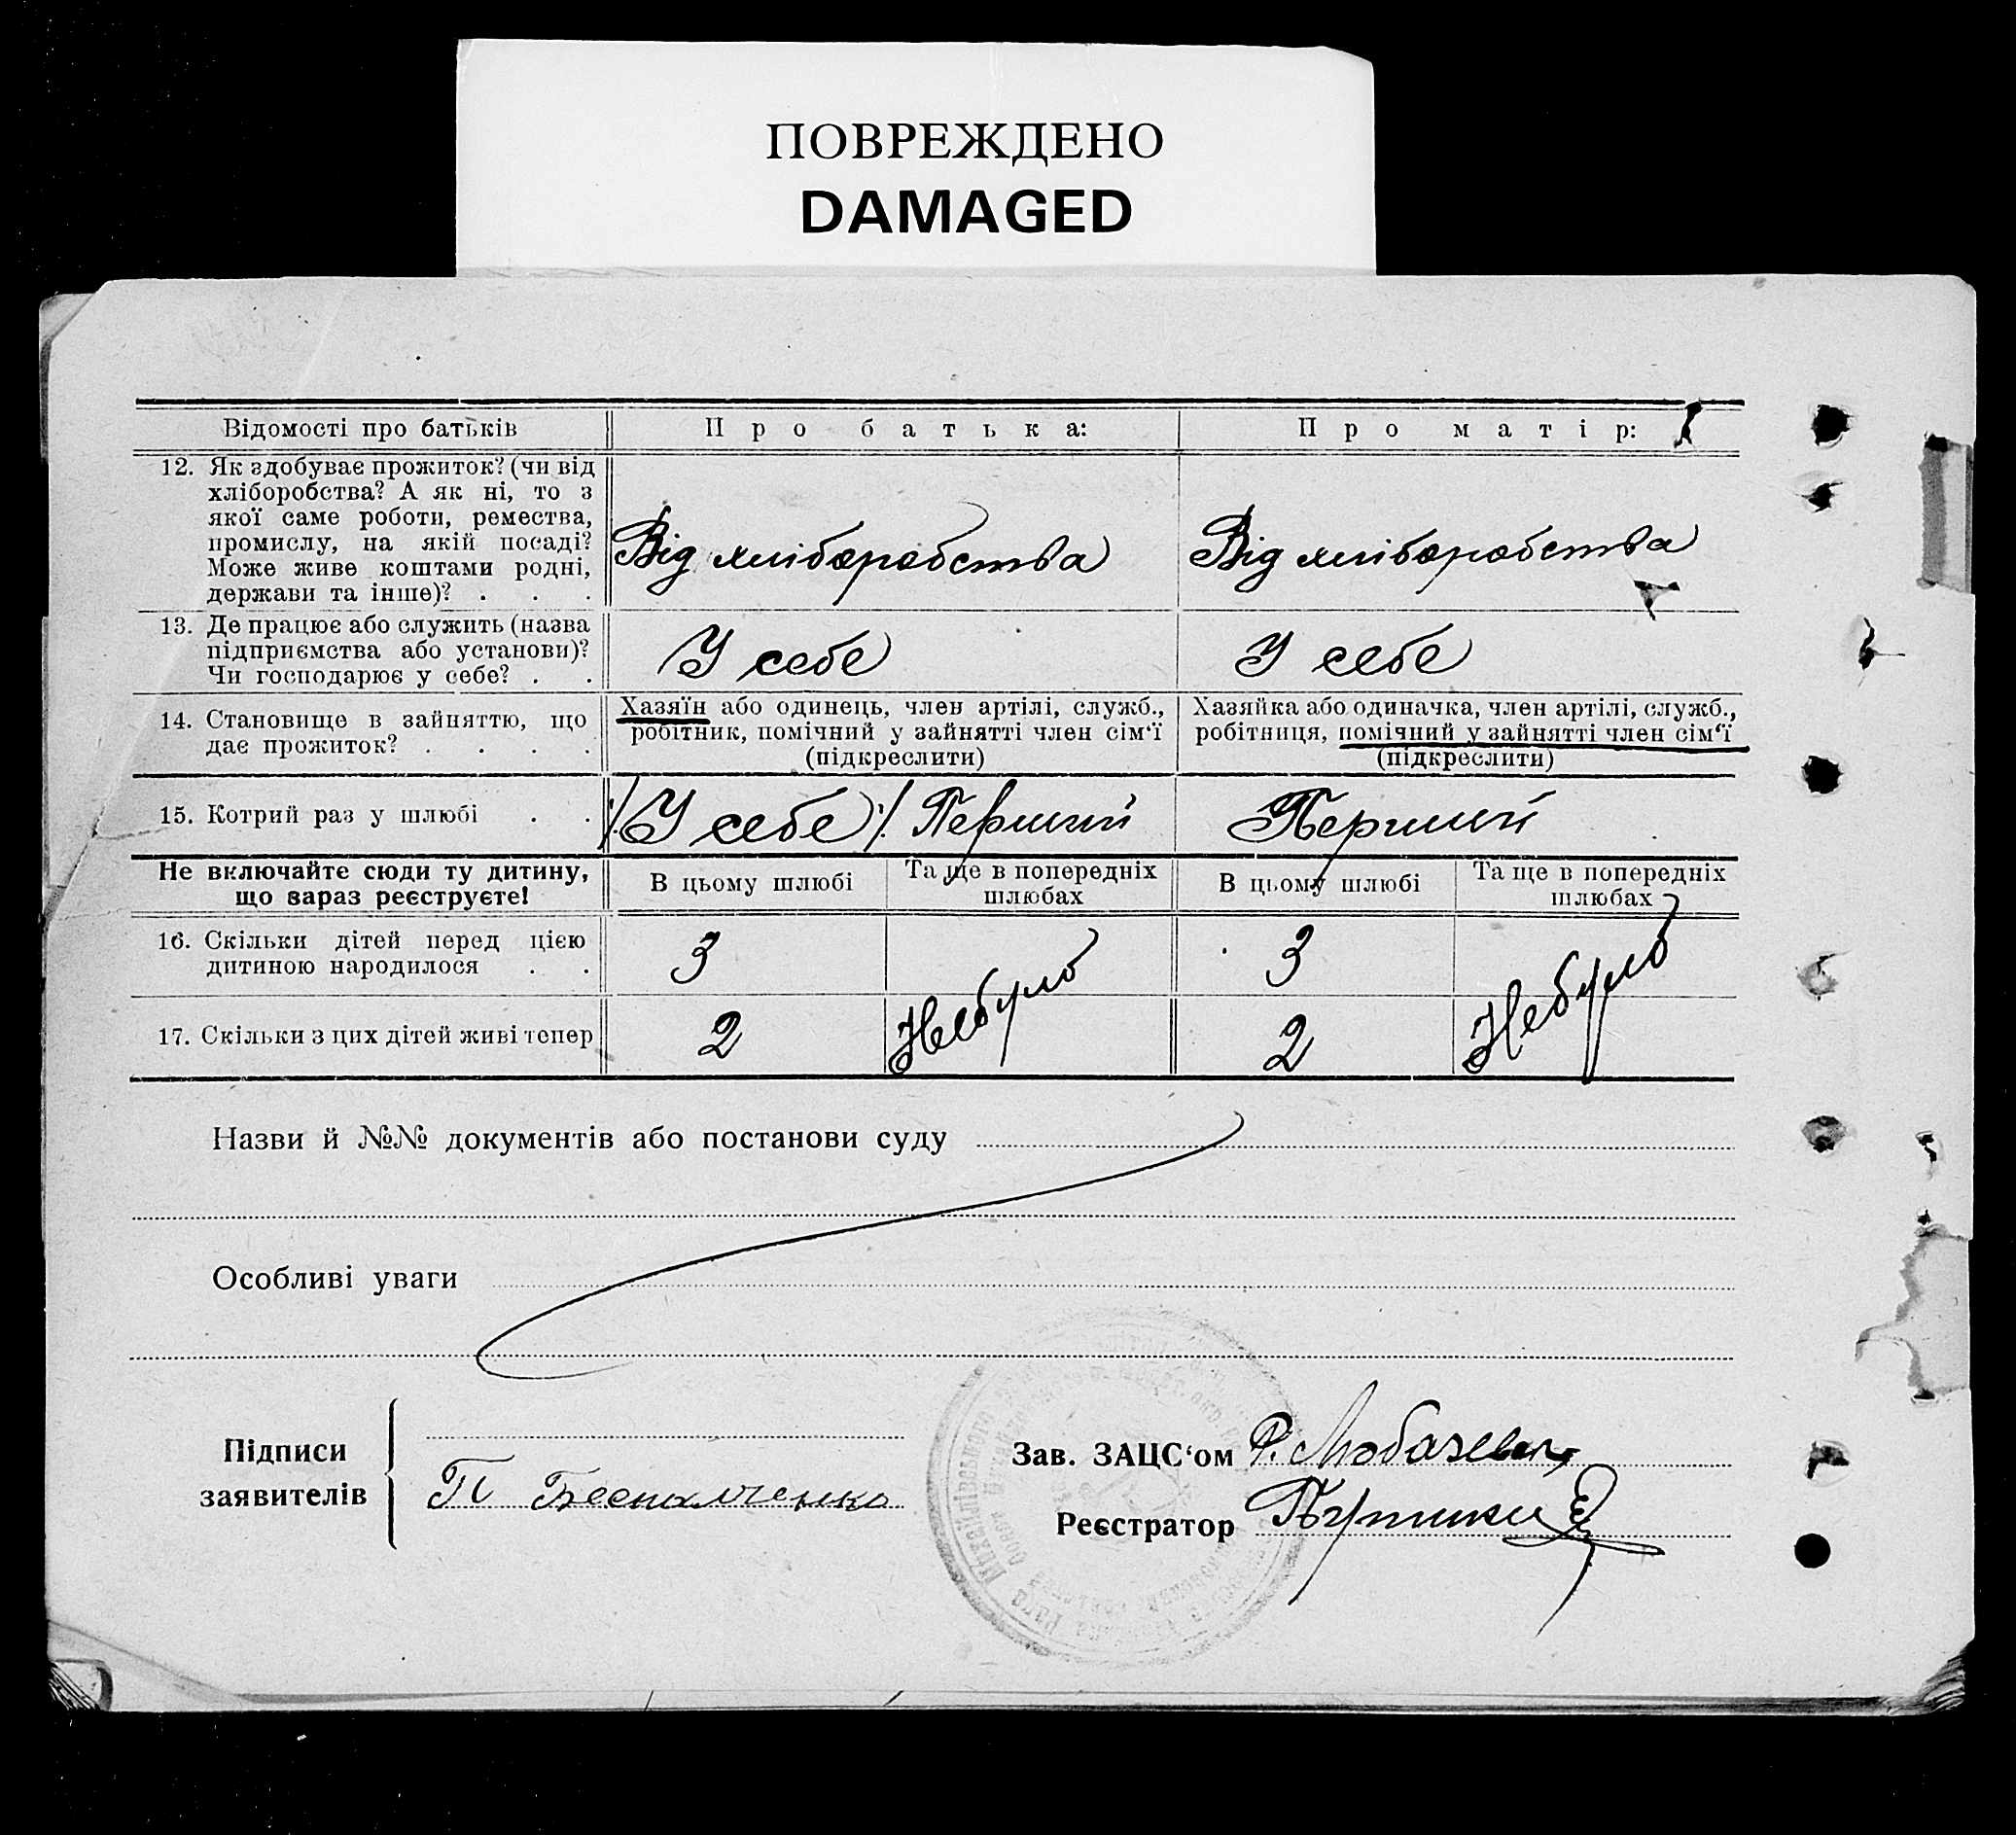 ПОВРЕЖДЕНО
DAMAGED
Відомості про батьків
Про батька:
Про матір:
12. Як здобуває прожиток? (чи від
хліборобства? А як ні, то з
якої саме роботи, ремества,
промислу, на якій посаді?
Може живе коштами родні,
держави та інше)? . . .
Від хліборобства
Від хліборобства
13. Де працює або служить (назва
підприємства або установи)?
Чи господарює у себе? . .
У себе
У себе
14. Становище в зайняттю, що
дає прожиток? . . . .
Хазяїн або одинець, член артілі, служб.,
робітник, помічний у зайнятті член сім‘ї
(підкреслити)
Хазяйка або одиначка, член артілі, служб.,
робітниця, помічний у зайнятті член сім‘ї
(підкреслити)
15. Котрий раз у шлюбі . .
/: У себе :/ Перший
Перший
Не включайте сюди ту дитину,
що зараз реєструєте!
В цьому шлюбі
Та ще в попередніх
шлюбах
В цьому шлюбі
Та ще в попередніх
шлюбах
16. Скільки дітей перед цією
дитиною народилося . .
3
3
17. Скільки з цих дітей живі тепер
2
Небуло
2
Небуло
Назви й №№ документів або постанови суду
Особливі уваги
Підписи
заявителів
П Беспалченко
Зав. ЗАЦС‘ом
Реєстратор